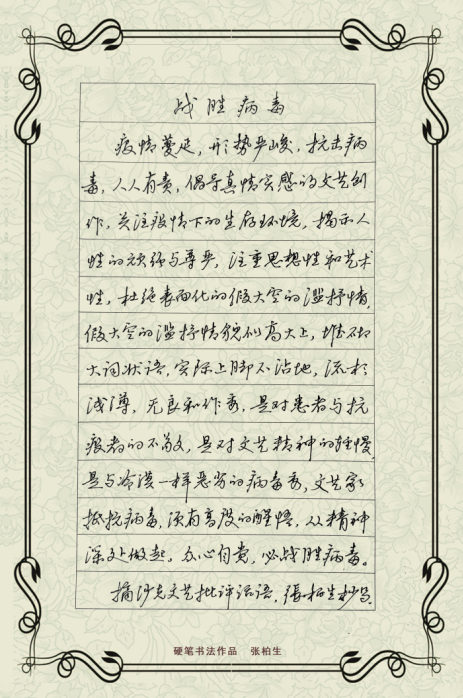 战胜病毒
疫情蔓延，形势严峻，抗击病
毒，人人有责，倡导真情实感的文艺创
作，关注疫情下的生存环境，揭示人
性的顽强与尊严，注重思想性和艺术
性，杜绝表面化的假大空的滥抒情，
假大空的滥抒情貌似高大上，堆砌
大词状语，实际上脚不沾地，流于
浅薄，无良和作秀，是对患者与抗
疫者的不敬，是对文艺精神的轻慢，
是与冷漠一样恶劣的病毒秀，文艺家
抵抗病毒，须有高度的醒悟，从精神
深处做起。众心自责，必战胜病毒。
摘沙克文艺批评语，張柏生抄写
硬笔书法作品 张柏生